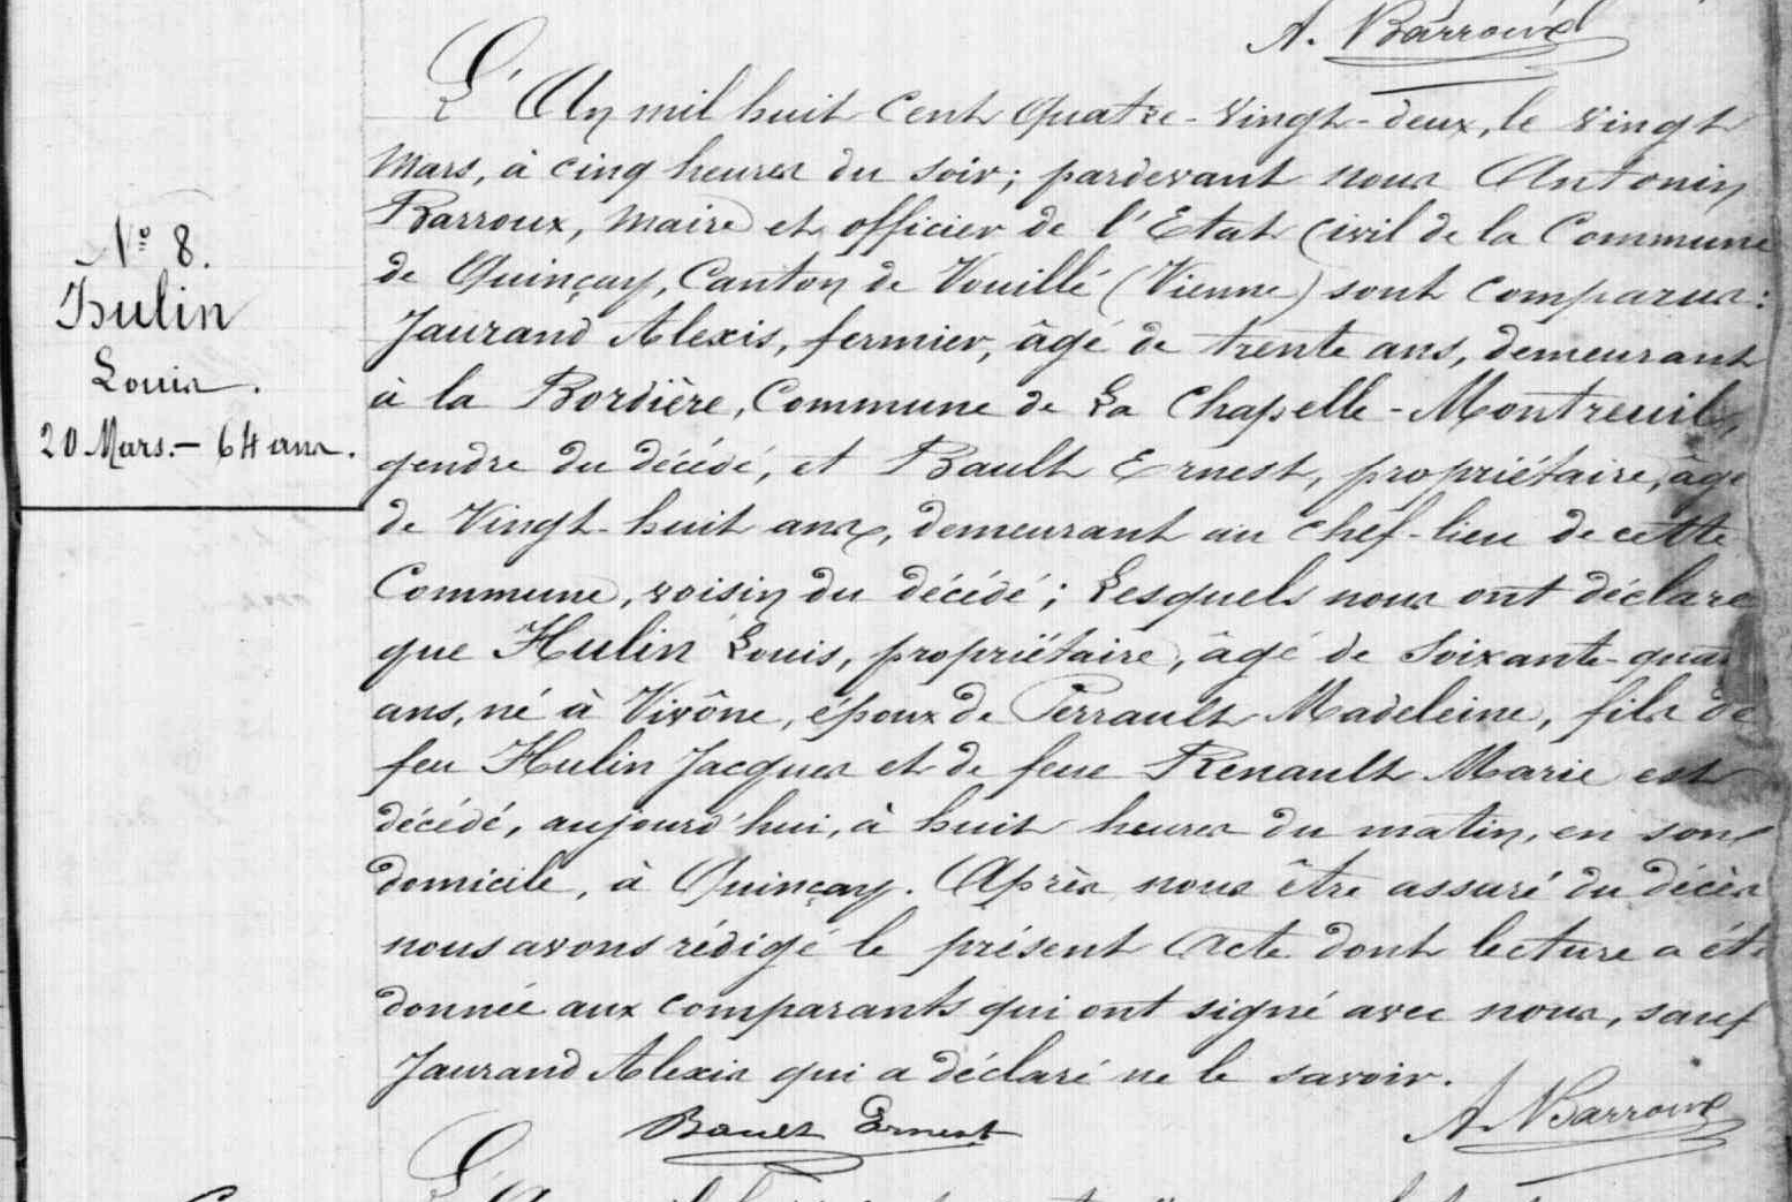 A. Barroux
L'An mil huit Cent Quatre-Vingt-deux, le Vingt
Mars, à cinq heures du soir; pardevant nous Antonin
Barroux, Maire et officier de l'Etat Civil de la Commune
de Quinçay, Canton de Vouillé (Vienne) sont comparus:
Jaurand Alexis, fermier, âgé de trente ans, demeurant
à la Bordière, Commune de La Chapelle-Montreuil,
gendre du décédé, et Bault Ernest, propriétaire, âgé
de Vingt-huit ans, demeurant au chef-lieu de cette
Commune, voisin du décédé; Lesquels nous ont déclaré
que Hulin Louis, propriétaire, âgé de Soixante-quatre
ans, né à Vivône, époux de Perrault Madeleine, fils de
feu Hulin Jacques et de feue Renault Marie est
décédé, aujourd'hui, à huit heures du matin, en son
domicile, à Quinçay. Après nous être assuré du décès
nous avons rédigé le présent Acte dont lecture a été
donnée aux comparants qui ont signé avec nous, sauf
Jaurand Alexis qui a déclaré ne le savoir.
Bault Ernest
A. Barroux
N° 8.
Hulin
Louis.
20 Mars. - 64 ans.